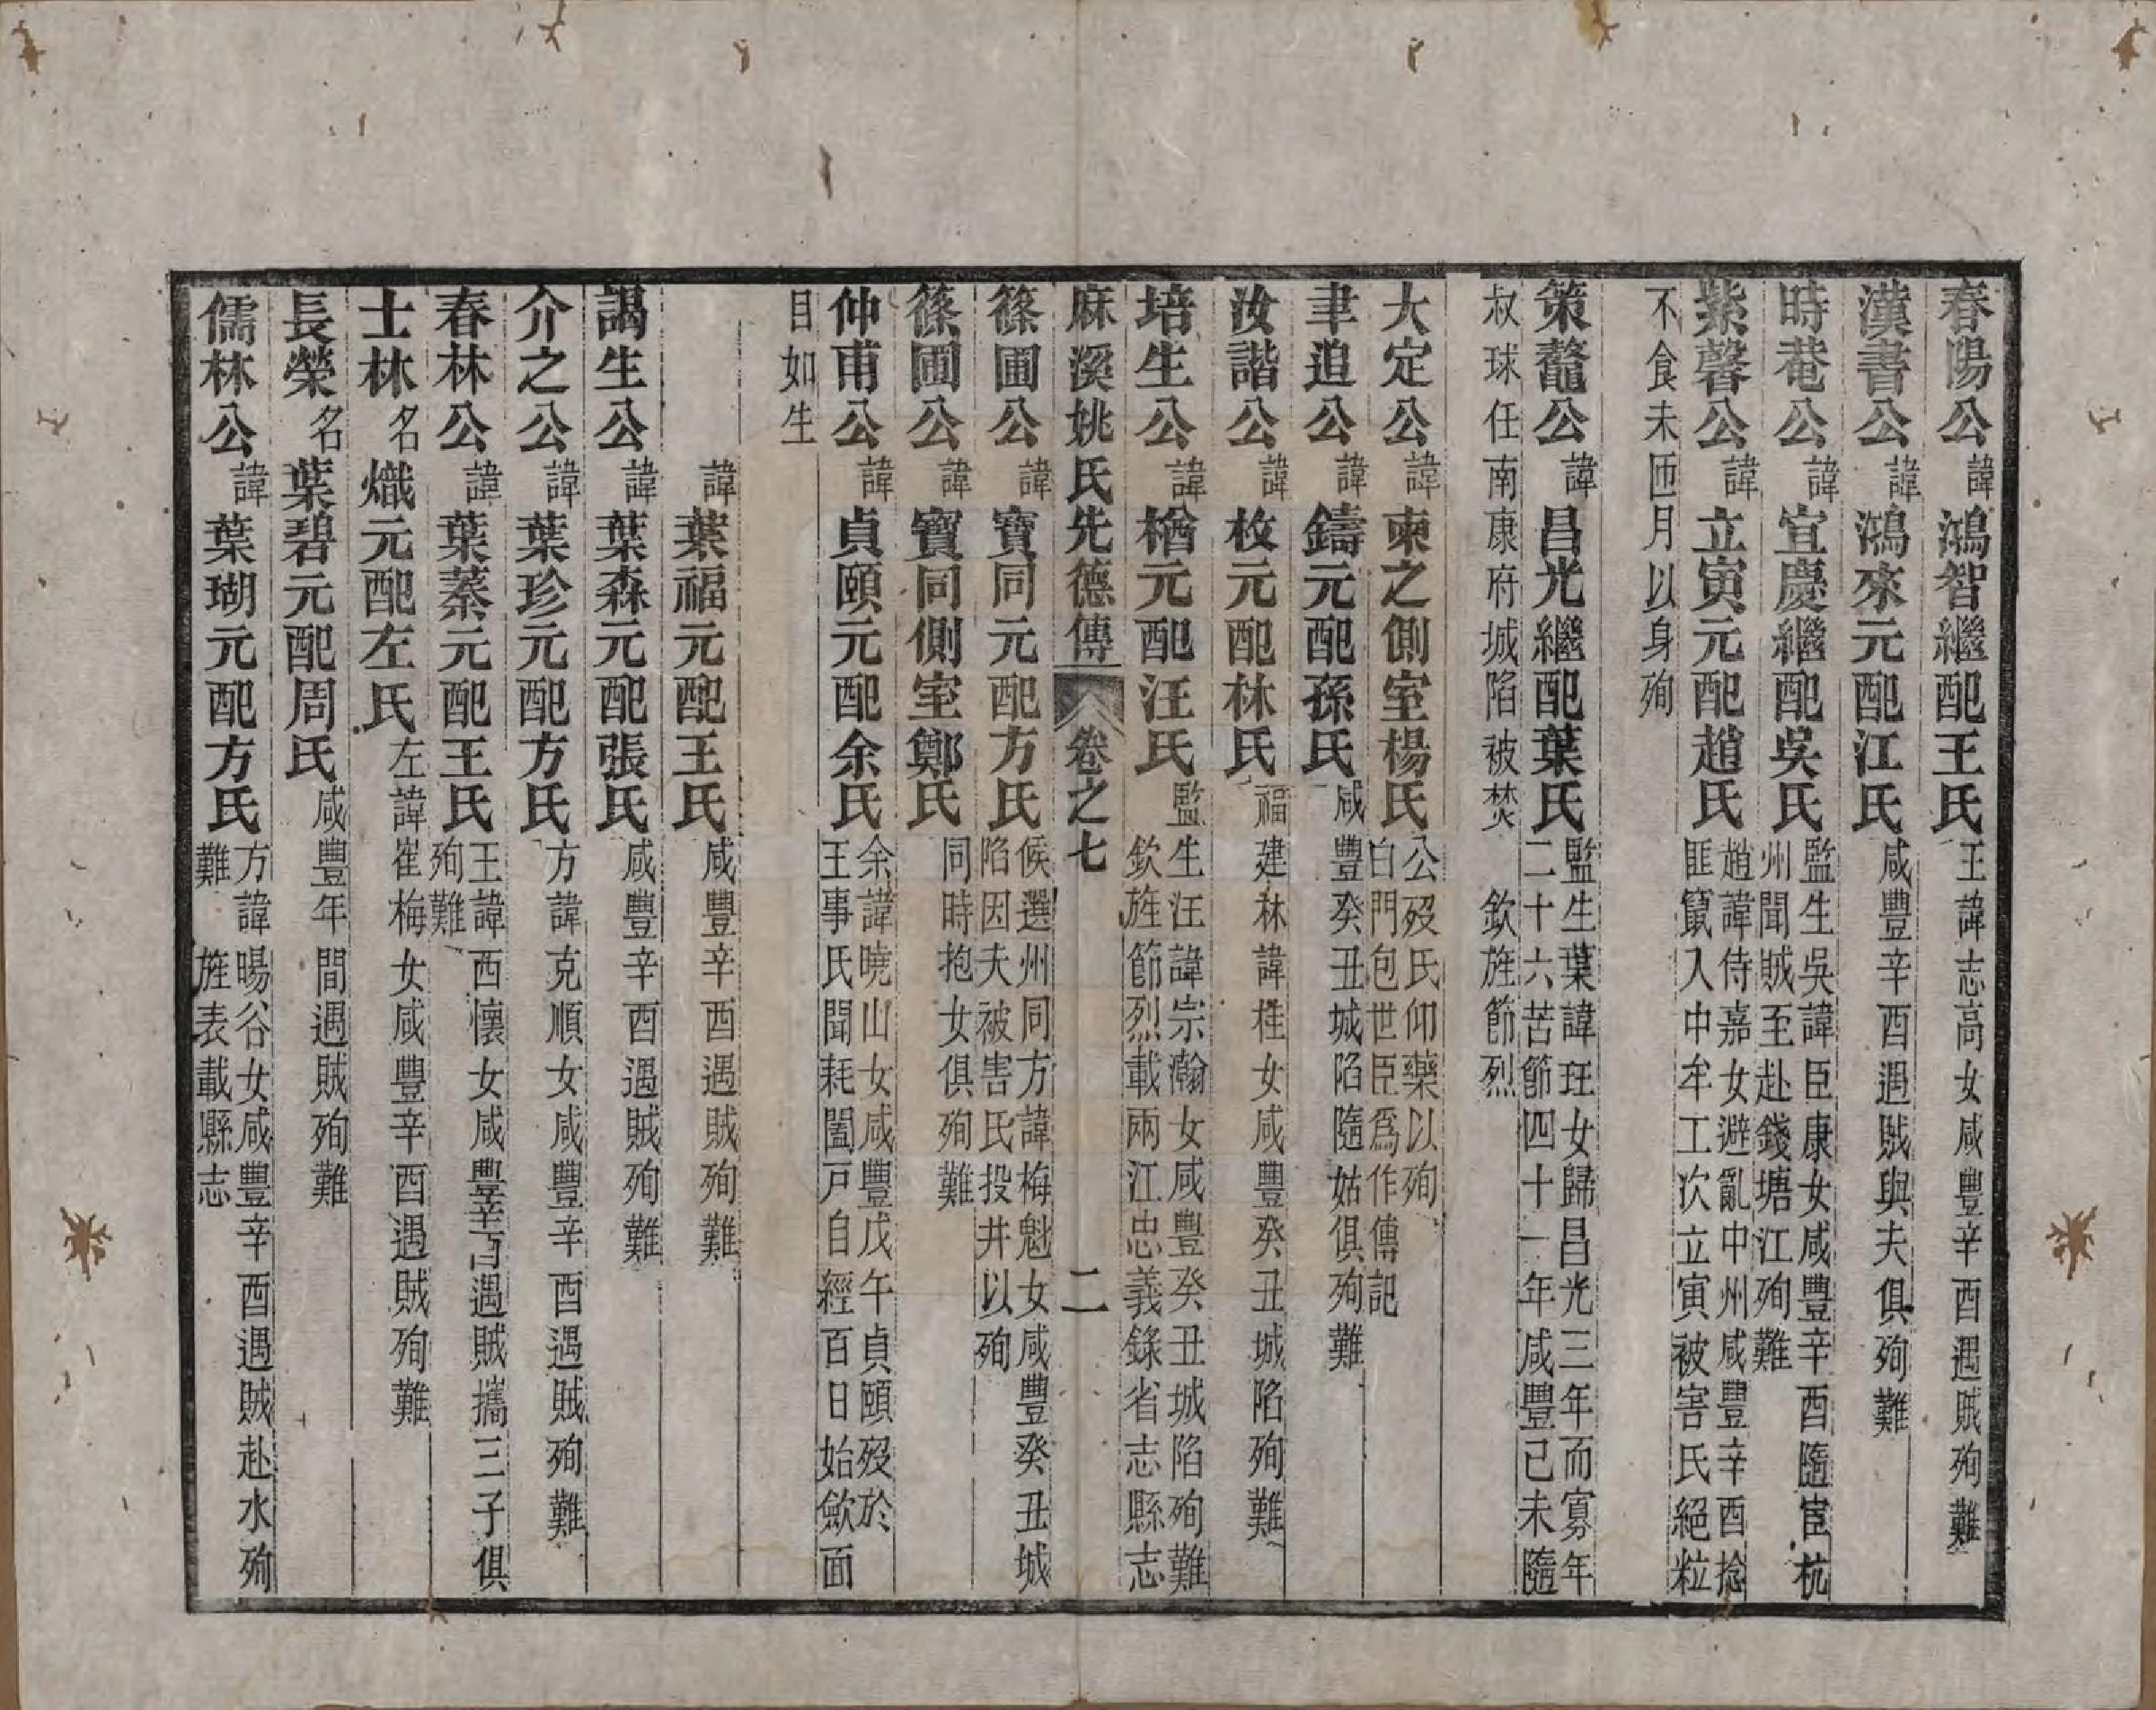 春陽公諱鴻智繼配王氏王諱志高女咸豐辛酉遇賊殉難
漢書公諱鴻來元配江氏咸豐辛酉遇賊與夫俱殉難
時菴公諱宜慶繼配吳氏監生吳諱臣康女咸豐辛酉隨宦杭州聞賊至赴錢塘江殉難
紫馨公諱立寅元配趙氏趙諱侍嘉女避亂中州咸豐辛酉捻匪竄入中牟工次立寅被害氏絕粒
不食未匝月以身殉
策鼇公諱昌光繼配葉氏監生葉諱玨女歸昌光三年而寡年二十六苦節四十一年咸豐已未隨
叔球任南康府城陷被焚　欽旌節烈
大定公諱柬之側室楊氏公歿氏仰藥以殉白門包世臣爲作傳記
聿追公諱鑄元配孫氏咸豐癸丑城陷隨姑俱殉難
汝諧公諱枚元配林氏福建林諱桂女咸豐癸丑城陷殉難
培生公諱楢元配汪氏監生汪諱宗瀚女咸豐癸丑城陷殉難欽旌節烈載兩江忠義錄省志縣志
麻溪姚氏先德傳　卷之七　二
篠圃公諱寶同元配方氏候選州同方諱梅魁女咸豐癸丑城陷因夫被害氏投井以殉
篠圃公諱寶同側室鄭氏同時抱女俱殉難
仲甫公諱貞頤元配余氏余諱曉山女咸豐戊午貞頤歿於王事氏聞耗闔戸自經百日始歛面
目如生
諱葉福元配王氏咸豐辛酉遇賊殉難
謁生公諱葉森元配張氏咸豐辛酉遇賊殉難
介之公諱葉珍元配方氏方諱克順女咸豐辛酉遇賊殉難
春林公諱葉蓁元配王氏王諱西懷女咸豐辛酉遇賊攜三子俱殉難
士林名熾元配左氏左諱崔梅女咸豐辛酉遇賊殉難
長榮名葉碧元配周氏咸豐年間遇賊殉難
儒林公諱葉瑚元配方氏方諱暘谷女咸豐辛酉遇賊赴水殉難　旌表載縣志